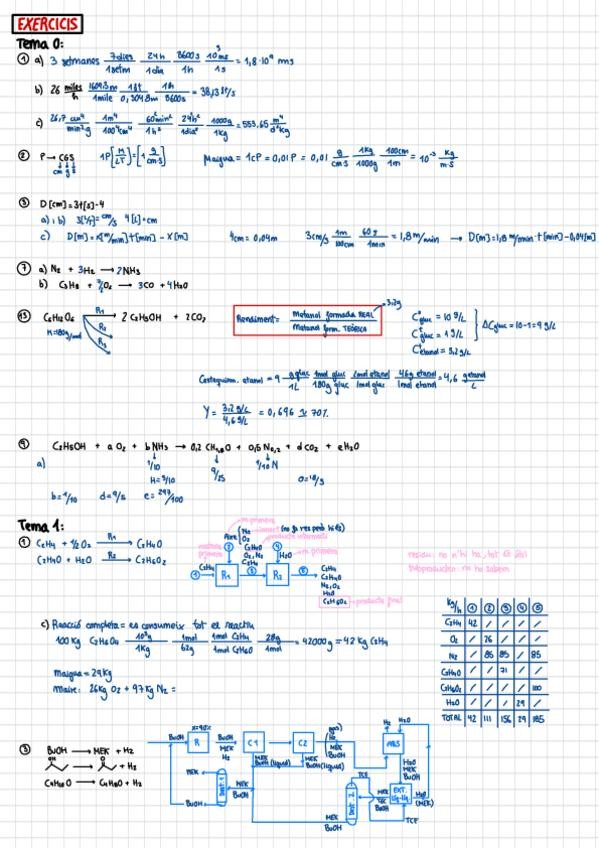 EXERCICIS
Tema 0:
① a) 3 setmanes 7dies/1setm 24h/1dia 3600s/1h 10³ms/1s = 1,8·10⁹ ms
b) 26 miles/h 1609,3m/1mile 1ft/0,3048m 1h/3600s = 38,13 ft/s
c) 26,7 cm⁴/min²·g 1m⁴/100⁴cm⁴ 60²min²/1h² 24h²/1dia² 1000g/1kg = 553,65 m⁴/d²kg
② P → CGS 1P[M/LT] = [1 g/cm·s] μaigua = 1cP = 0,01 P = 0,01 g/cm·s 1Kg/1000g 100cm/1m = 10⁻³ Kg/m·s
cm g s
③ D[cm] = 3t[s]-4
a) i b) 3[L/T] = cm/s 4[L] = cm
c) D[m] = x[m/min]·t[min] - X[m] 4cm = 0,04m 3cm/s 1m/100cm 60s/1min = 1,8 m/min → D[m] = 1,8 m/min·t[min] - 0,04[m]
⑦ a) N₂ + 3H₂ → 2NH₃
b) C₃H₈ + 7/2O₂ → 3CO + 4H₂O
⑬ C₆H₁₂O₆ R₁ 2 C₂H₅OH + 2CO₂
M=180g/mol R₂ R₃
Rendiment = Metanol formada REAL / Metanol form. TEÒRICA → 3,2g
C°gluc = 10 g/L
Cᶠgluc = 1 g/L
Cᶠetanol = 3,2g/L
ΔCgluc = 10-1 = 9 g/L
Cestequiom. etanol = 9 g gluc/1L 1mol gluc/180g gluc 2mol etanol/1mol gluc 46g etanol/1mol etanol = 4,6 getanol/L
Y = 3,2 g/L / 4,6 g/L = 0,696 ≃ 70%
⑨ C₂H₅OH + a O₂ + b NH₃ → 0,2 CH₁,₈O + 0,5 N₀,₂ + d CO₂ + e H₂O
a)
Tema 1:
① C₂H₄ + ½ O₂ R₁ C₂H₄O
C₂H₄O + H₂O R₂ C₂H₆O₂
m.primera
Aire N₂ inert (no fa res però hi és)
O₂
matèria primera
producte intermedi
② C₂H₄O O₂, N₂ C₂H₄
④ H₂O m.primera
C₂H₄ ① R₁ ③ R₂ ⑤ C₂H₄ C₂H₄O N₂, O₂ H₂O C₂H₆O₂ producte final
residu: no n'hi ha, tot és útil
Subproductes: no ho sabem
c) Reacció completa = es consumeix tot el reactiu
100 Kg C₂H₆O₂ 10³g/1Kg 1mol/62g 1mol C₂H₄/1mol C₂H₆O₂ 28g/1mol = 42000g = 42 Kg C₂H₄
maigua = 29Kg
maire: 26Kg O₂ + 97Kg N₂ =
kg/h ① ② ③ ④ ⑤
C₂H₄ 42 / / / /
O₂ / 26 / / /
N₂ / 85 85 / 85
C₂H₄O / / 71 / /
C₂H₆O₂ / / / / 100
H₂O / / / 29 /
TOTAL 42 111 156 29 185
③ BuOH → MEK + H₂
OH O + H₂
C₄H₁₀O → C₄H₈O + H₂
BuOH R x=90% BuOH MEK H₂ C1 BuOH MEK H₂ C2 (gas) H₂ MEK BuOH ABS H₂ H₂O
MEK BuOH (líquid) MEK BuOH (líquid)
MEK Dest.1 MEK BuOH BuOH
MEK BuOH Dest.2 TCE MEK TCE BuOH EXT. líq-líq H₂O MEK BuOH H₂O (MEK) TCE